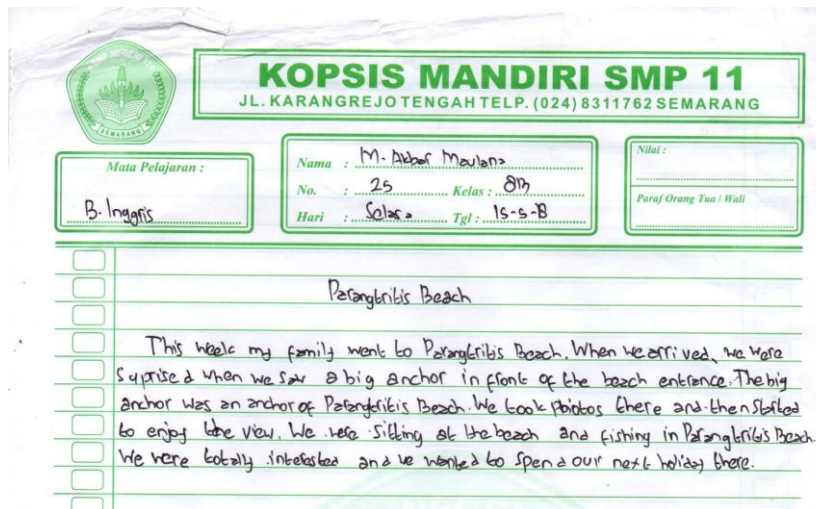 SEMARANG
KOPSIS MANDIRI SMP 11
JL. KARANGREJO TENGAH TELP. (024) 8311762 SEMARANG
Mata Pelajaran :
B. Inggris
Nama : M. Akbar Maulana
No. : 25 Kelas : 8B
Hari : Selasa Tgl : 15-5-18
Nilai :
Paraf Orang Tua / Wali
Parangtritis Beach
This week my family went to Parangtritis Beach. When we arrived, we were
suprised when we saw a big anchor in front of the beach entrance. The big
anchor was an anchor of Parangtritis Beach. We took photos there and then started
to enjoy the view. We were sitting at the beach and fishing in Parangtritis Beach.
We were totally interested and we wanted to spend our next holiday there.